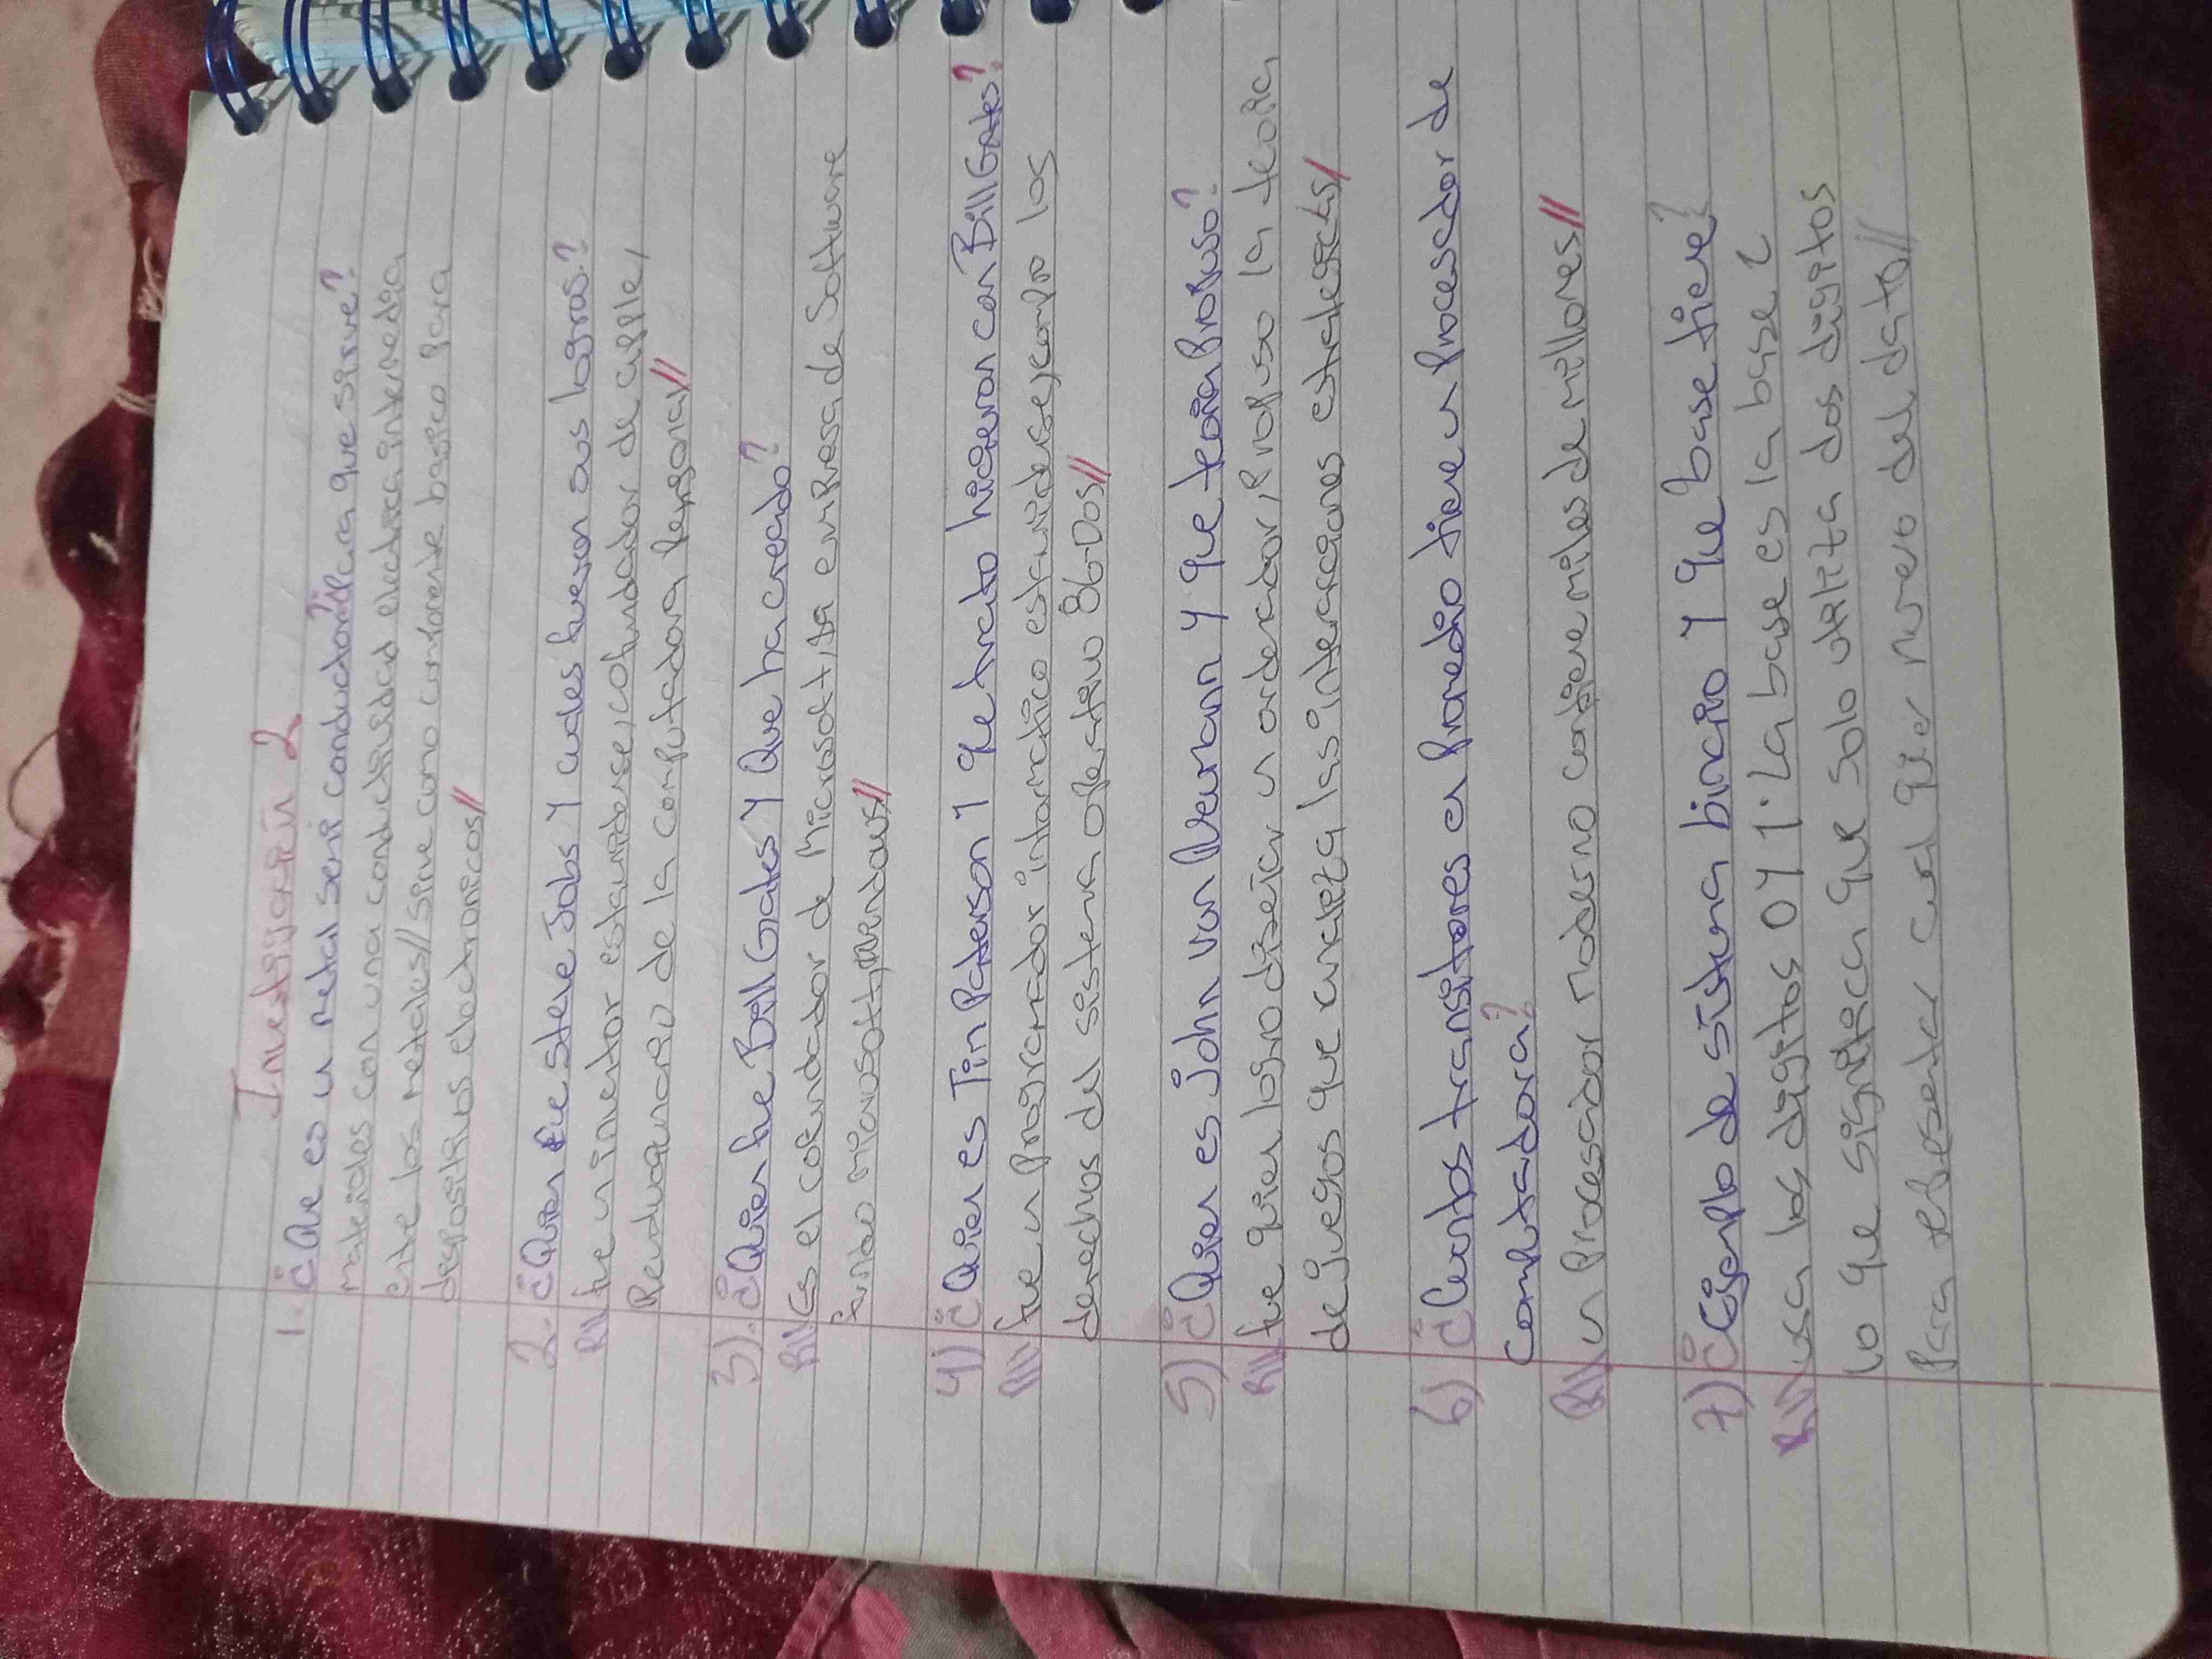 Investigación 2
1. ¿Que es u metal semi conductor? ¿Para que sirve?
materiales con una conductividad electrica intermedia
entre los metales// sirve como componente basico para
dispositivos electronicos//
2. ¿Quien fue steve Jobs y cuales fueron sus logros?
R// fue un inventor estaunidense, cofundador de apple,
Revoluqunario de la computadora personal//
3). ¿Quien fue Bill Gates y Que ha creado?
R// Es el cofundador de Microsoft, la empresa de Software
fundao Microsoft, Wendows//
4) ¿Quien es Tin Paterson y que truato hicieron con Bill Gates?
R// fue un programador informatico estaunidense, compro los
derechos del sistema operativo 86-Dos//
5) ¿Quien es john von Neumann y que teoria Propuso?
R// fue quien logro diseñar un ordenador, Propuso la teoria
de juegos que analiza las interacciones estrategicas//
6) ¿Cuantos transitores en Promedio tiene un Procesador de
Computadora?
R// un Procesador moderno contiene miles de millones//
7) ¿Ejemplo de sistema binario y que base tiene?
R// usa los digitos 0 y 1. La base es la base 2
lo que significa que solo utiliza dos digitos
para representar cual quier numero del dato//